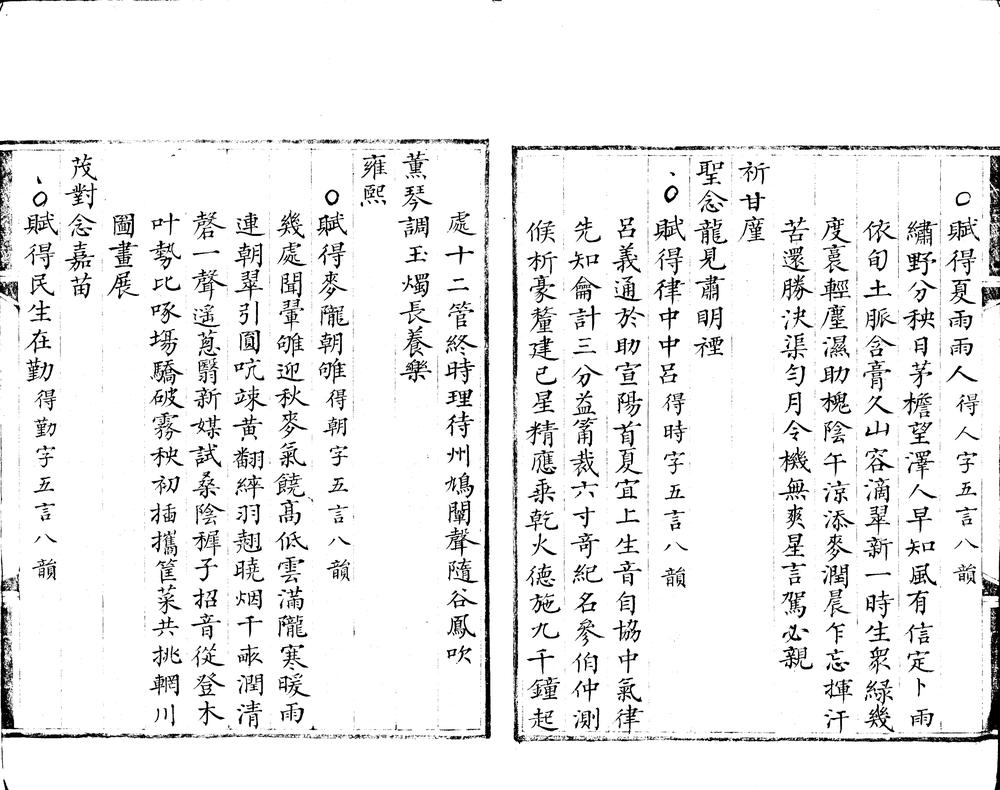 ○賦得夏雨雨人得人字五言八韻
繡野分秧日茅檐望澤人早知風有信定卜雨
依旬土脈含膏久山容滴翠新一時生衆綠幾
度裛輕塵濕助槐陰午涼添麥潤晨乍忘揮汗
苦還勝決渠勻月令機無爽星言駕必親
祈甘䨪
聖念龍見肅明禋
、○賦得律中中呂得時字五言八韻
呂義通於助宣陽首夏宜上生音自協中氣律
先知龠計三分益筩裁六寸奇紀名參伯仲測
候析豪釐建巳星精應乘乾火德施九千鐘起
處十二管終時理待州鳩闡聲隨谷鳳吹
薰琴調玉燭長養樂
雍熙
○賦得麥隴朝雊得朝字五言八韻
幾處聞翬雊迎秋麥氣饒高低雲滿隴寒暖雨
連朝翠引圓吭竦黃翻綷羽翹曉烟千畝潤清
磬一聲遥蔥翳新媒試桑陰穉子招音從登木
叶勢比啄場驕破霧秧初插攜筐菜共挑輞川
圖畫展
茂對念嘉苗
、○賦得民生在勤得勤字五言八韻